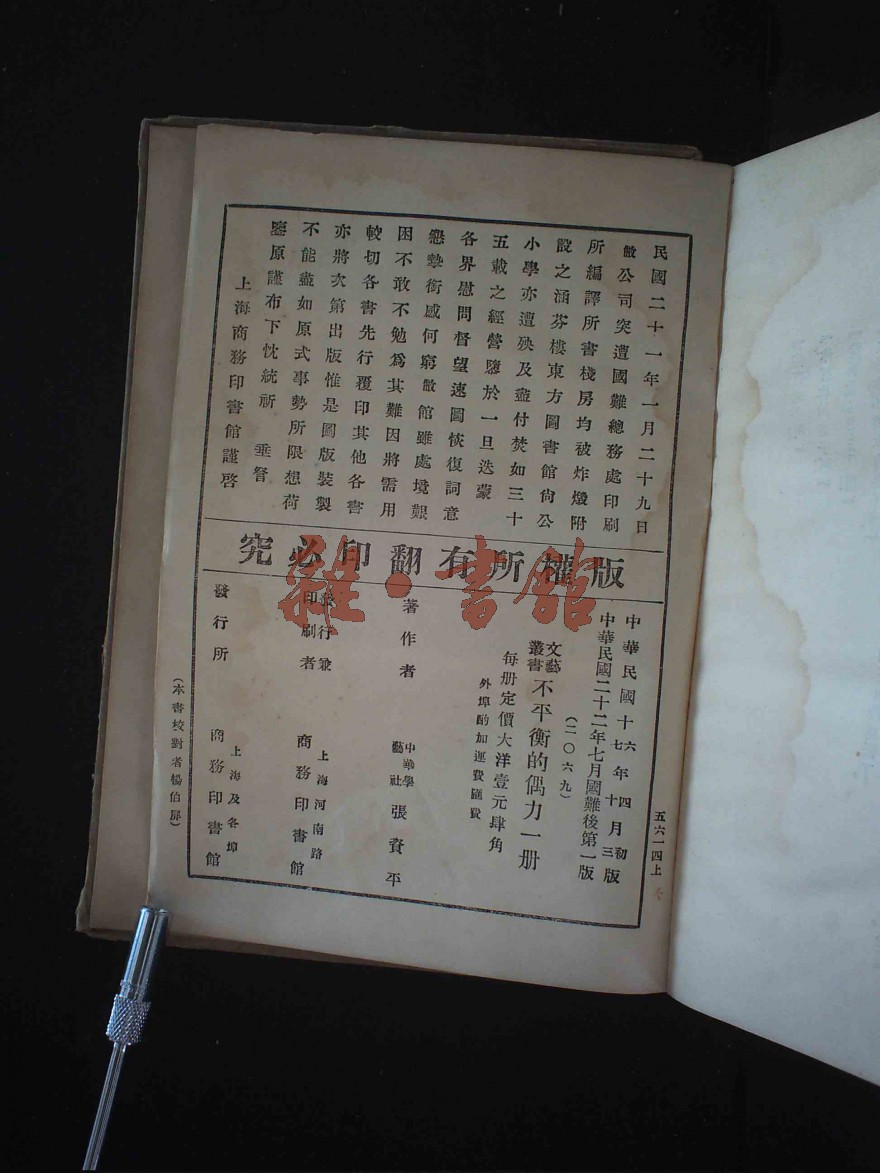 民國二十一年一月二十九日
敝公司突遭國難總務處印刷
所編譯所書棧房均被炸燬附
設之涵芬樓東方圖書館尙公
小學亦遭殃及盡付焚如三十
五載之經營隳於一旦迭蒙
各界慰問督望速圖恢復詞意
懇摯銜感何窮敝館雖處境艱
困不敢不勉爲其難因將需用
較切各書先行覆印其他各書
亦將次第出版惟是圖版裝製
不能盡如原式事勢所限想荷
鑒原謹布下忱統祈 垂詧
上海商務印書館謹啓
版權所有翻印必究
雜·書館
五六一四上
中華民國十六年四月初版
中華民國十七年十月三版
中華民國二十二年七月國難後第一版
(二〇六九)
文藝叢書 不平衡的偶力一册
每册定價大洋壹元肆角
外埠酌加運費匯費
著作者 中華學藝社 張資平
發行兼印刷者 上海河南路 商務印書館
發行所 上海及各埠 商務印書館
(本書校對者楊伯屏)